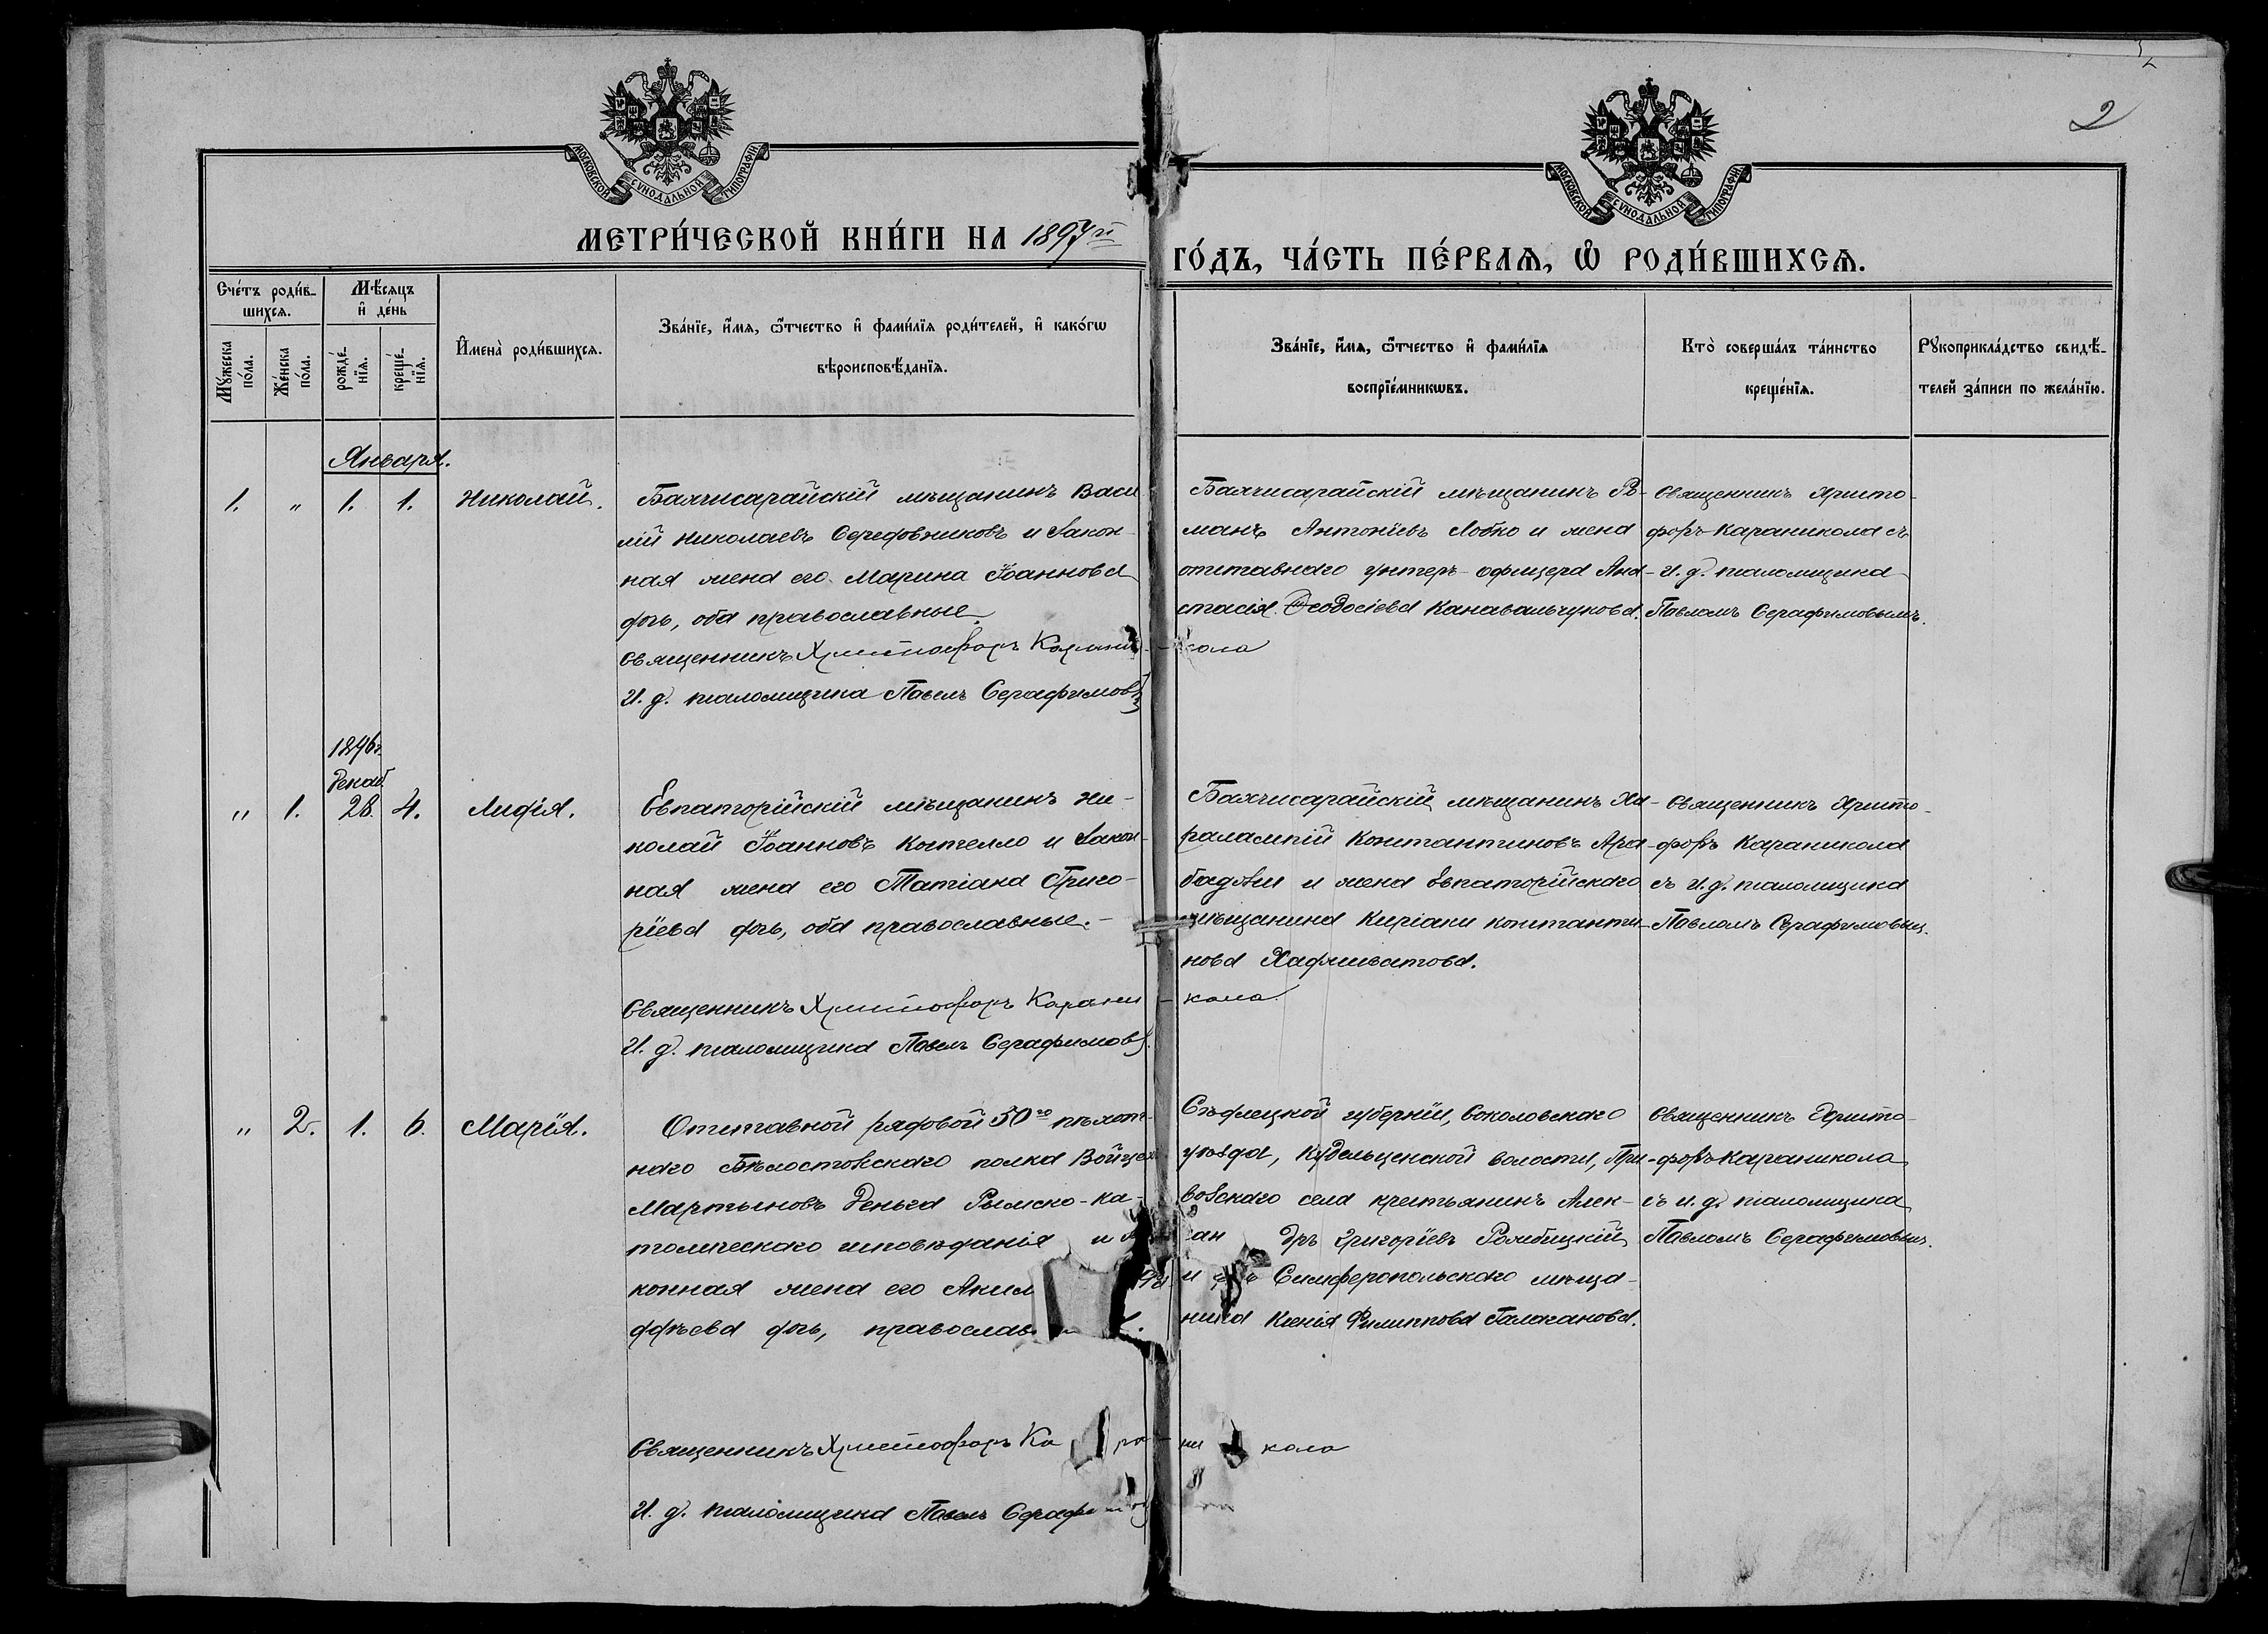 2
МОСКОВСКОЙ СѴНОДАЛЬНОЙ ТИПОГРАФІИ
МОСКОВСКОЙ СѴНОДАЛЬНОЙ ТИПОГРАФІИ
МЕТРИ́ЧЕСКОЙ КНИ́ГИ НА 1897й
ГО́ДЪ, ЧА́СТЬ ПЕ́РВАѦ, Ѡ҆ РОДИ́ВШИХСѦ.
Сче́тъ роди́в-
шихсѧ.
Мѣ́сѧцъ
и҆ де́нь
Мꙋ́жеска по́ла.
Же́нска по́ла.
рожде́-
нїѧ.
креще́-
нїѧ.
И҆мена̀ роди́вшихсѧ.
Зва́нїе, и҆́мѧ, ѻ҆́тчество и҆ фами́лїѧ роди́телей, и҆ како́гѡ
вѣроисповѣ́данїѧ.
Зва́нїе, и҆́мѧ, ѻ҆́тчество и҆ фами́лїѧ
воспрїе́мникѡвъ.
Кто̀ соверша́лъ та́инство
креще́нїѧ.
Рꙋкоприкла́дство свидѣ́-
телей за́писи по жела́нїю.
Января.
1. " 1. 1. Николай.
Бахчисарайскій мѣщанинъ Васи
лій Николаевъ Середовниковъ и закон-
ная жена его Марина Іоаннова
дочь, оба православные.
Священникъ Христофоръ Карани-
И. д. псаломщика Павелъ Серафимовъ
Бахчисарайскій мѣщанинъ Ро-
манъ Антоніевъ Лобко и жена
отставнаго унтеръ-офицера Ана-
стасія Ѳеодосіева Канавальчукова.
кола
Священникъ Христо-
форъ Караникола съ
и. д. псаломщика
Павломъ Серафимовымъ.
1896г.
Декаб.
" 1. 28. 4. Лидія.
Евпаторійскій мѣщанинъ Ни-
колай Іоанновъ Костелло и закон-
ная жена его Татіана Григо-
ріева дочь, оба православные.-
Священникъ Христофоръ Карани-
И. д. псаломщика Павелъ Серафимовъ.
Бахчисарайскій мѣщанинъ Ха-
ралампій Константиновъ Ара-
баджи и жена Евпаторійскаго
мѣщанина Киріаки Константи-
нова
кола
Священникъ Христо-
форъ Караникола
съ и. д. псаломщика
Павломъ Серафимовым.
" 2. 1. 6. Марія.
Отставной рядовой 30го пѣхот-
наго Бѣлостокскаго полка Войцех
Мартыновъ Деньга Римско-ка-
толическаго исповѣданія и за
конная жена его Аким
дочь, православ
Священникъ Христофоръ Ка ра-
И. д. псаломщика Павелъ Серафимов
Сѣдлецкой губерніи, Соколовскаго
уѣзда, волости,
села крестьянинъ Алек-
сан дръ Григоріевъ
и дочь Симферопольскаго мѣща-
нина Ксенія Филиппова Галаганова.
ни кола
Священникъ Христо-
форъ Караникола
съ и. д. псаломщика
Павломъ Серафимовым.